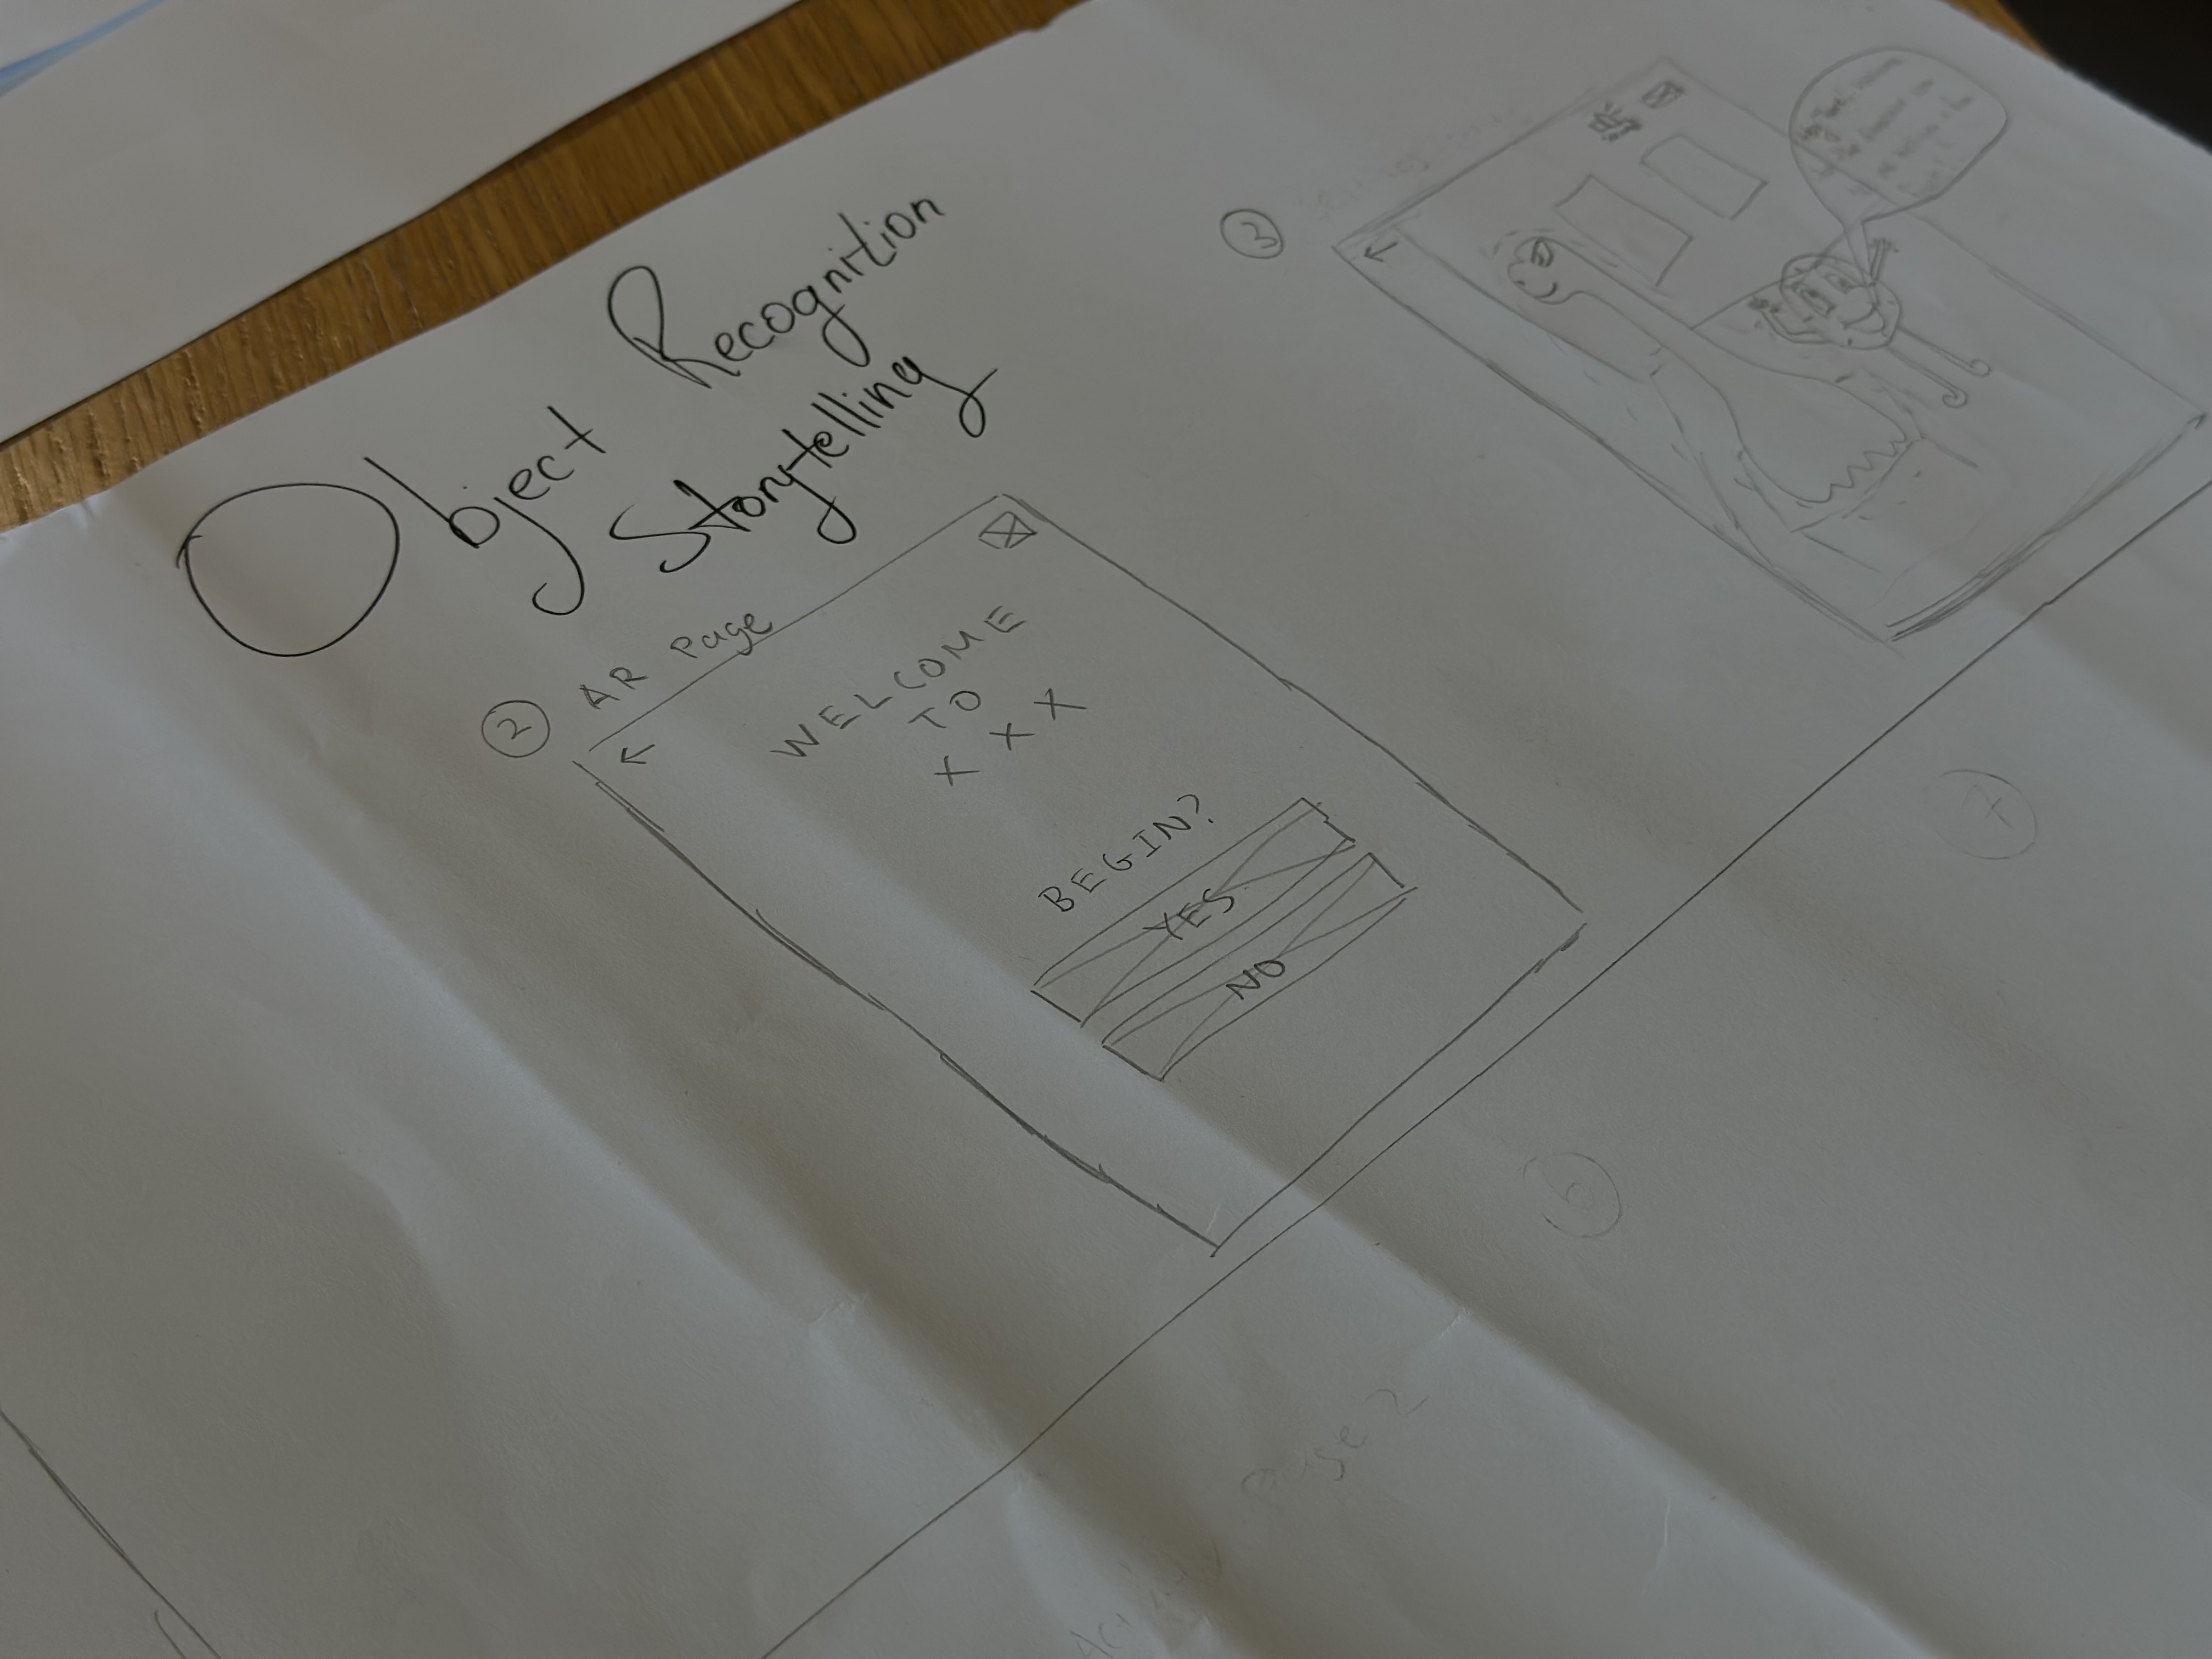 Object Recognition
Storytelling
2 AR Page
←
WELCOME
TO
X X X
BEGIN?
YES
NO
3
←
7
6
Page 2